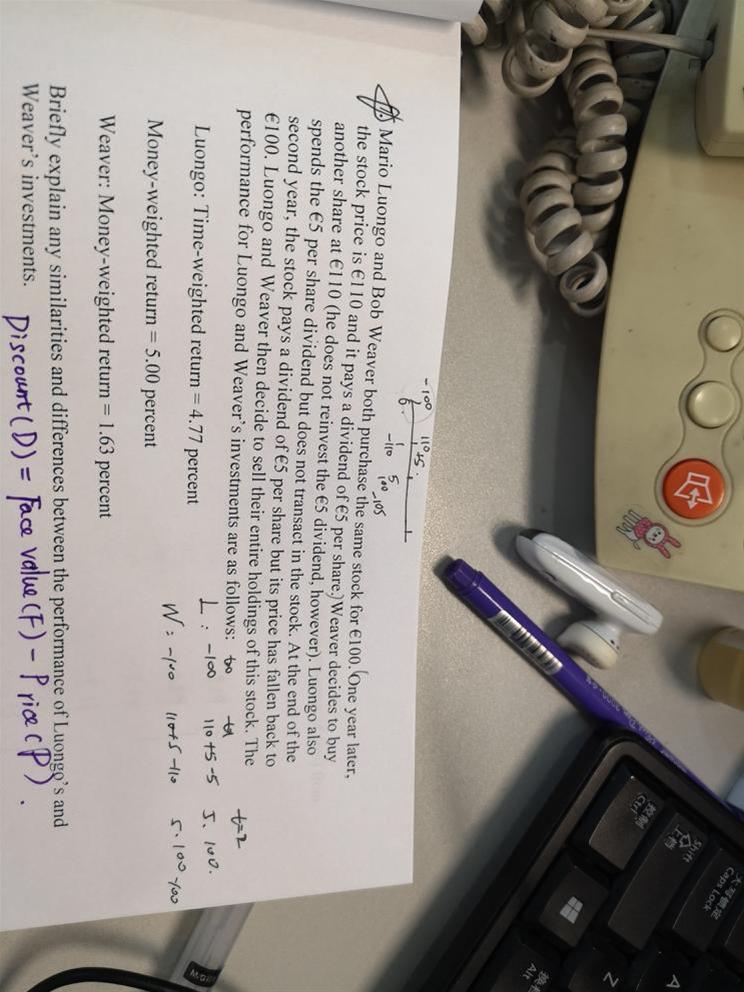 -100
110+5
-110
5
100
-105
Mario Luongo and Bob Weaver both purchase the same stock for €100. (One year later,
the stock price is €110 and it pays a dividend of €5 per share.) Weaver decides to buy
another share at €110 (he does not reinvest the €5 dividend, however). Luongo also
spends the €5 per share dividend but does not transact in the stock. At the end of the
second year, the stock pays a dividend of €5 per share but its price has fallen back to
€100. Luongo and Weaver then decide to sell their entire holdings of this stock. The
performance for Luongo and Weaver's investments are as follows:
t=2
Luongo: Time-weighted return = 4.77 percent
L : -100 110+5-5 5. 100.
Money-weighted return = 5.00 percent
W : -100 110+5-110
Weaver: Money-weighted return = 1.63 percent
Briefly explain any similarities and differences between the performance of Luongo's and
Weaver's investments.
Discount(D) = Face value(F) - Price(P).
控制
Ctrl
Shift
大写锁定
Caps Lock
Alt
Z
A